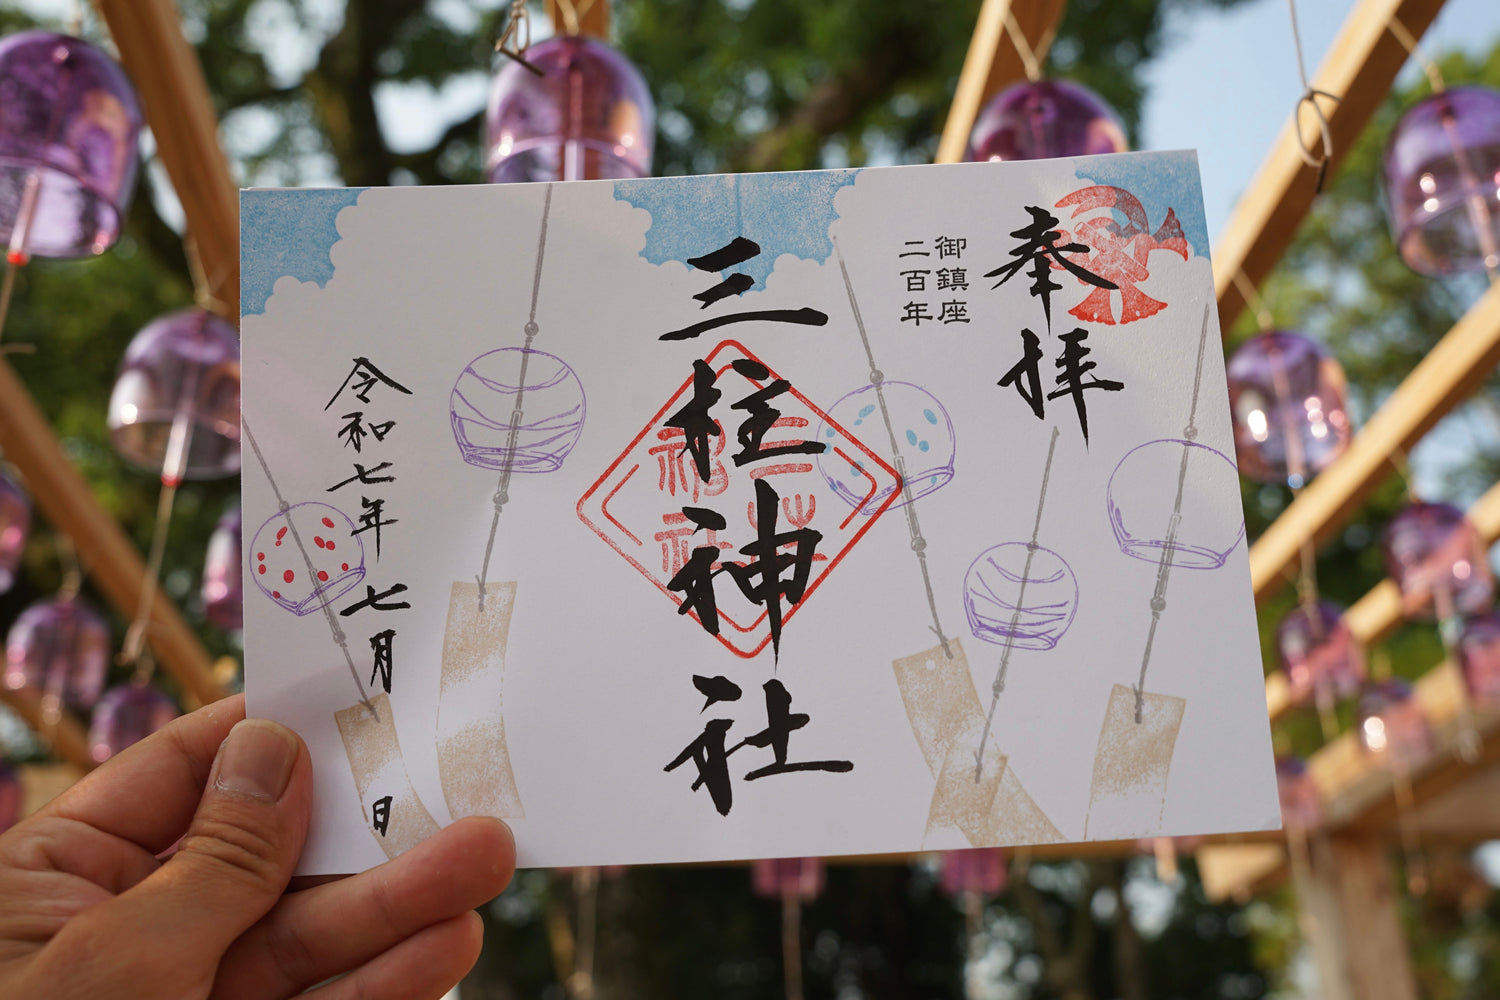 奉拝
御鎮座
二百年
三柱神社
令和七年 七月 日